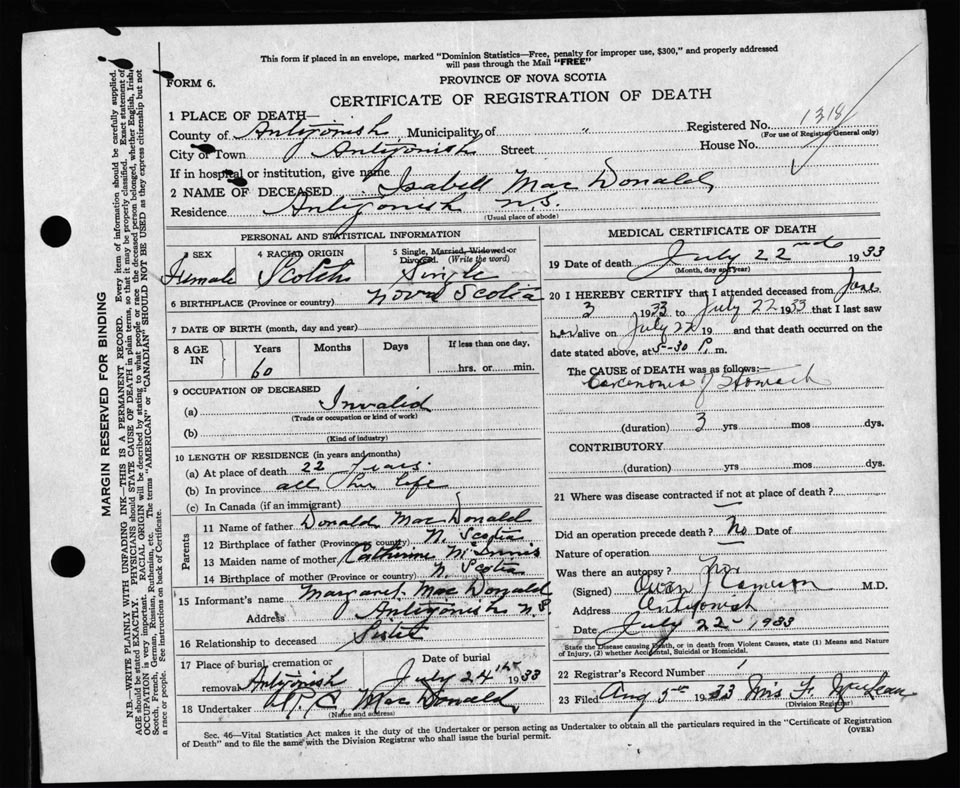 This form if placed in an envelope, marked "Dominion Statistics—Free, penalty for improper use, $300," and properly addressed
will pass through the Mail "FREE"
FORM 6.
PROVINCE OF NOVA SCOTIA
CERTIFICATE OF REGISTRATION OF DEATH
1 PLACE OF DEATH—
County of Antigonish, Municipality of "
Registered No. 1318
(For use of Registrar General only)
City or Town Antigonish Street
House No.
If in hospital or institution, give name
2 NAME OF DECEASED Isabell Mac Donald
Residence Antigonish N.S.
(Usual place of abode)
PERSONAL AND STATISTICAL INFORMATION
3 SEX
Female
4 RACIAL ORIGIN
Scotch
5 Single, Married, Widowed or
Divorced. (Write the word)
Single
6 BIRTHPLACE (Province or country) Nova Scotia
7 DATE OF BIRTH (month, day and year)
8 AGE IN
Years Months Days If less than one day,
60 hrs. or min.
9 OCCUPATION OF DECEASED
(a) Invalid
(Trade or occupation or kind of work)
(b)
(Kind of industry)
10 LENGTH OF RESIDENCE (in years and months)
(a) At place of death 22 years.
(b) In province all her life
(c) In Canada (if an immigrant)
Parents
11 Name of father Donald Mac Donald
12 Birthplace of father (Province or county) N. Scotia
13 Maiden name of mother Catherine McInnis
14 Birthplace of mother (Province or country) N. Scotia
15 Informant's name Margaret Mac Donald
Address Antigonish N.S
16 Relationship to deceased Sister
17 Place of burial, cremation or Date of burial
removal Antigonish July 24th 1933
18 Undertaker Mac Donald
(Name and address)
MEDICAL CERTIFICATE OF DEATH
19 Date of death July 22nd 1933
(Month, day and year)
20 I HEREBY CERTIFY that I attended deceased from June
3 1933 to July 22 1933 that I last saw
her alive on July 22 19 and that death occurred on the
date stated above, at 5-30 P. m.
The CAUSE of DEATH was as follows:—
Carcinoma of Stomach
(duration) 3 yrs mos dys.
CONTRIBUTORY
(duration) yrs mos dys.
21 Where was disease contracted if not at place of death?
Did an operation precede death? No Date of
Nature of operation
Was there an autopsy? No
(Signed) Owen Cameron M.D.
Address Antigonish
Date July 22 1933
State the Disease causing Death, or in death from Violent Causes, state (1) Means and Nature
of Injury, (2) whether Accidental, Suicidal or Homicidal.
22 Registrar's Record Number 1
23 Filed Aug 5th 1933 Mrs F.
(Division Registrar)
Sec. 46—Vital Statistics Act makes it the duty of the Undertaker or person acting as Undertaker to obtain all the particulars required in the "Certificate of Registration
of Death" and to file the same with the Division Registrar who shall issue the burial permit.
(OVER)
MARGIN RESERVED FOR BINDING
N.B.—WRITE PLAINLY WITH UNFADING INK—THIS IS A PERMANENT RECORD. Every item of information should be carefully supplied.
AGE should be stated EXACTLY. PHYSICIANS should STATE CAUSE OF DEATH in plain terms, so that it may be properly classified. Exact statement of
OCCUPATION is very important. RACIAL ORIGIN will be described by stating to what people or race the deceased person belonged, whether English, Irish,
Scotch, French, German, Russian, Ruthenian, etc. The terms "AMERICAN" or "CANADIAN" SHOULD NOT BE USED as they express citizenship but not
a race or people. See instructions on back of Certificate.